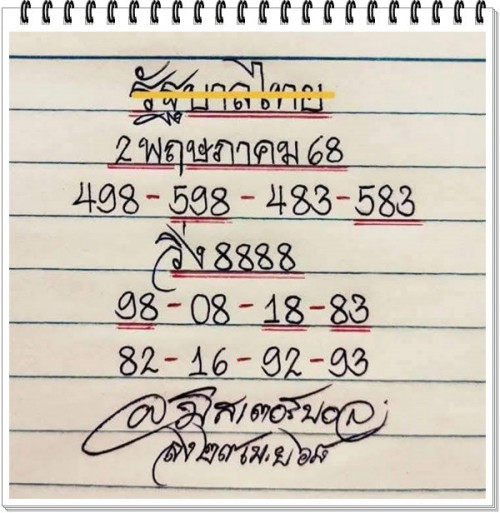 รัฐบาลไทย
2 พฤษภาคม 68
498 - 598 - 483 - 583
วิ่ง 8888
98 - 08 - 18 - 83
82 - 16 - 92 - 93
มิสเตอร์บอล